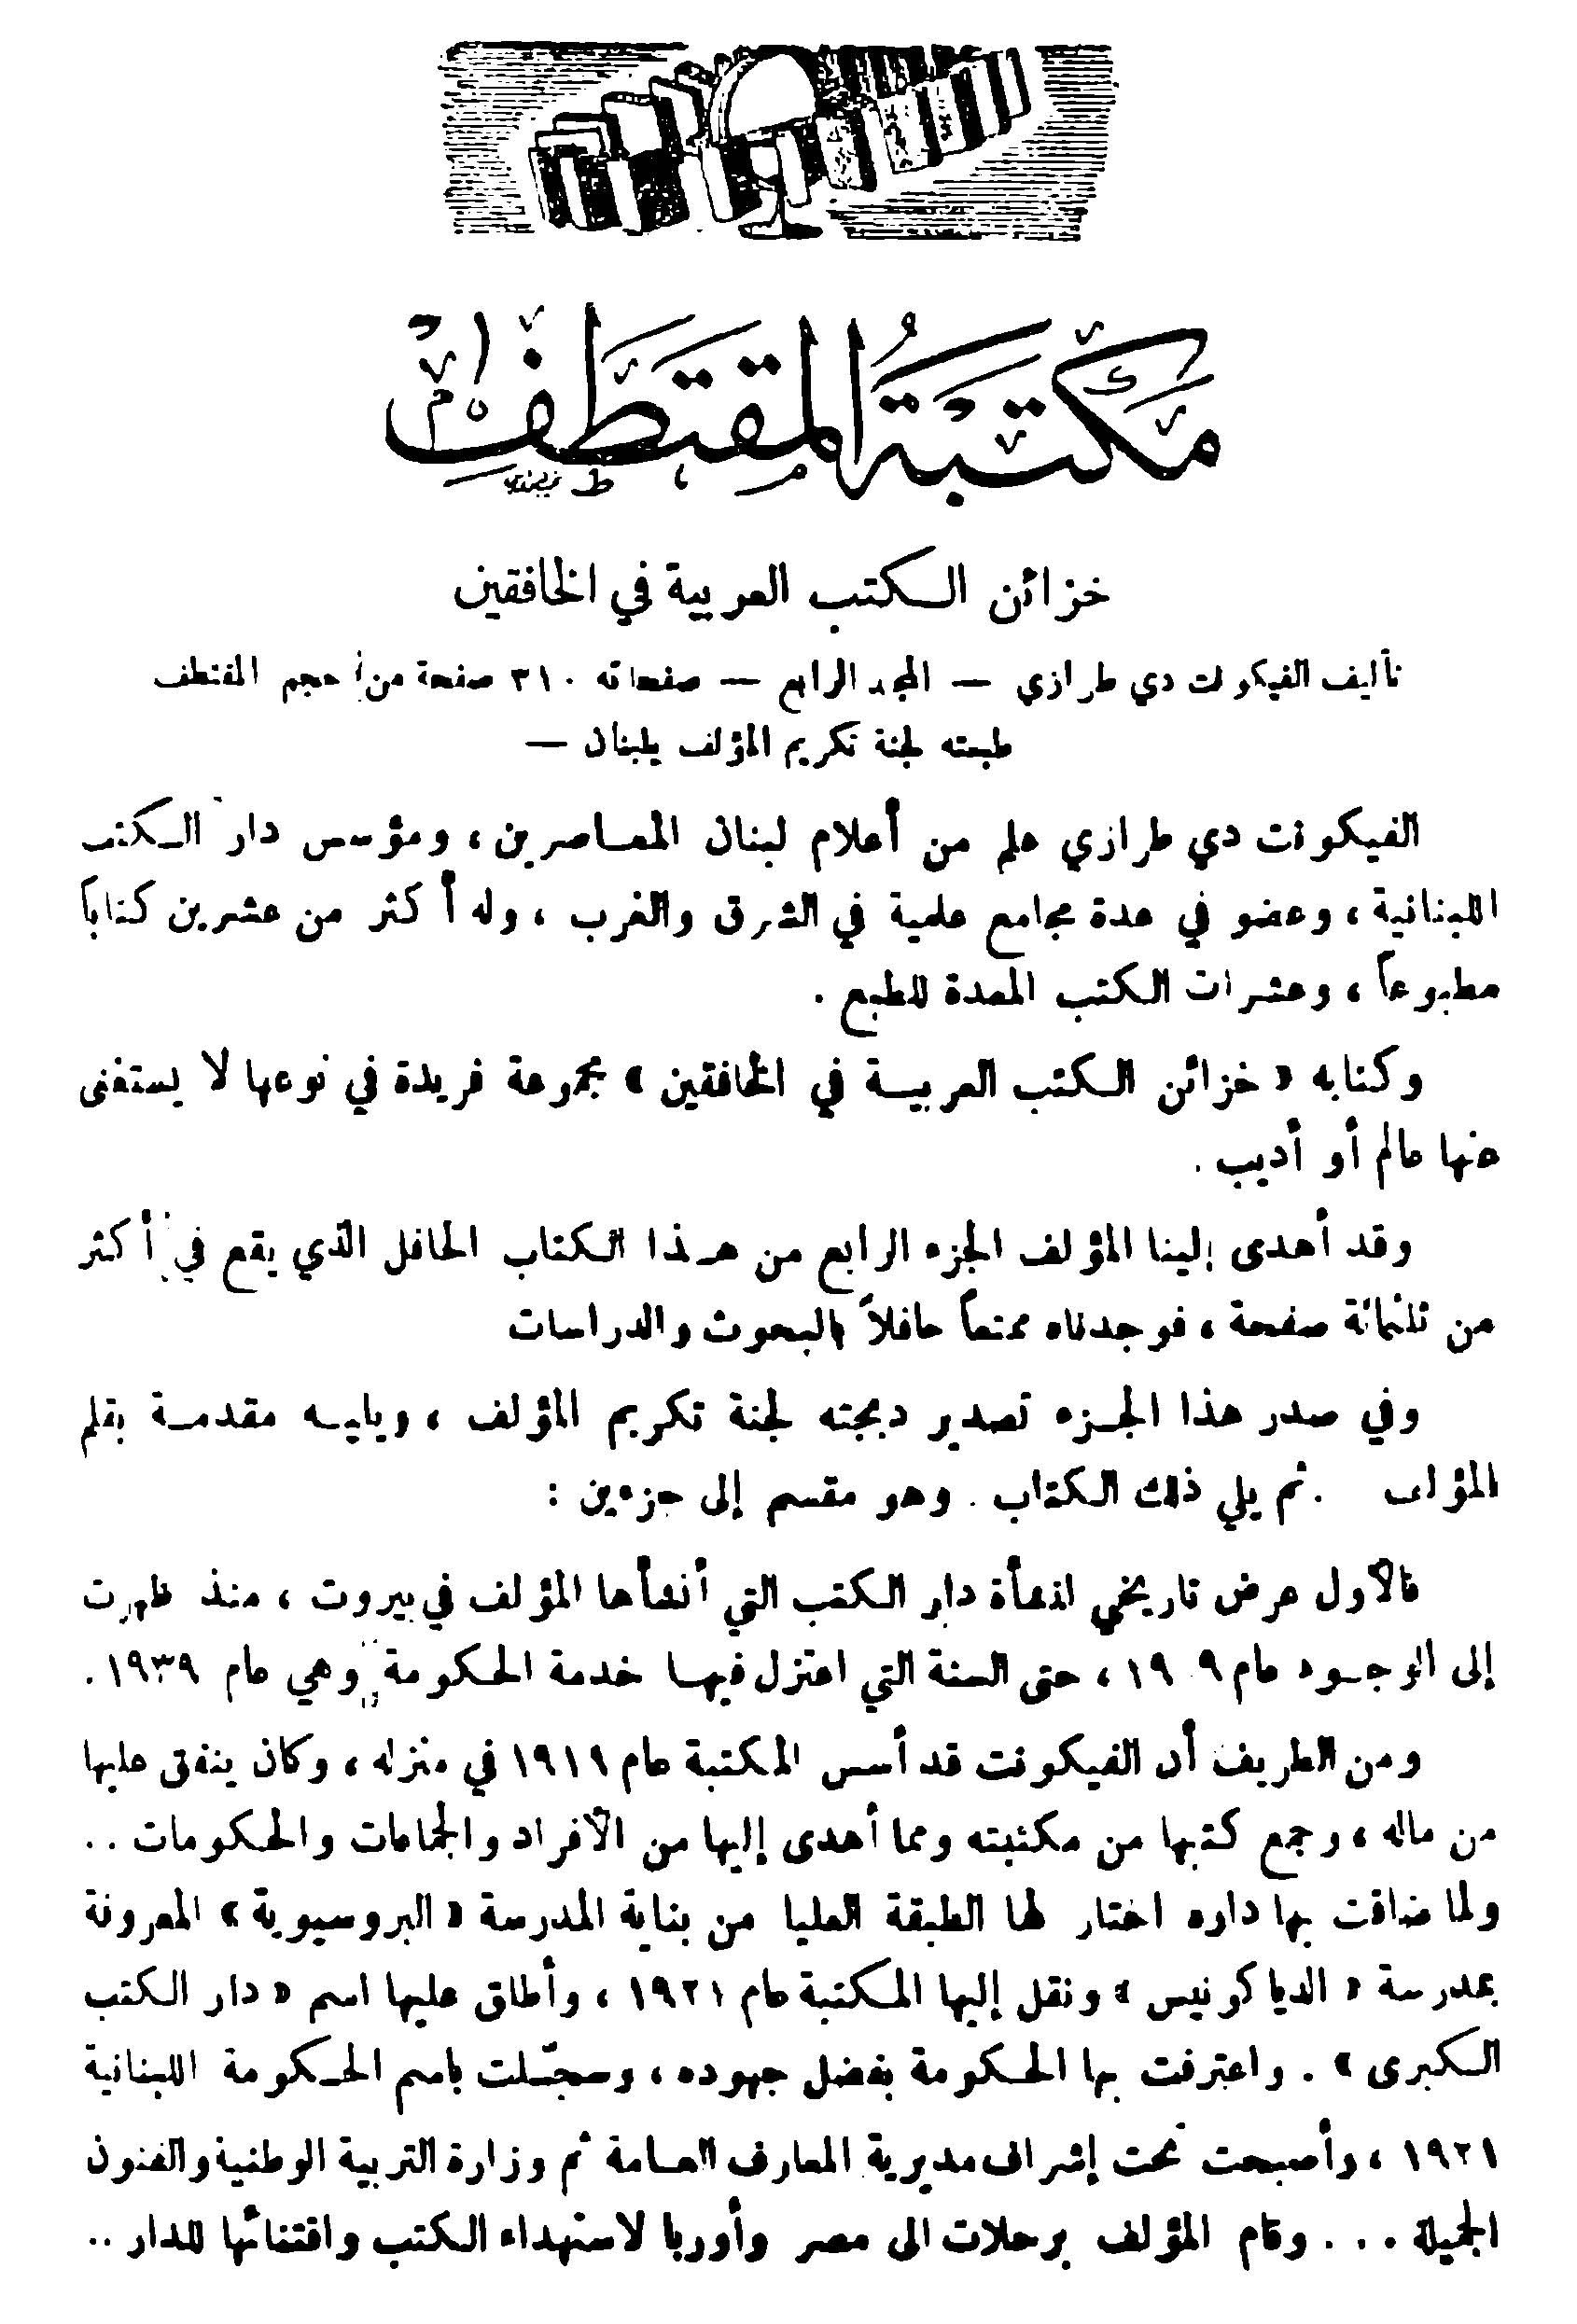 مكتبة المقتطف
خزائن الكتب العربية في الخافقين
تأليف الفيكونت دي طرازي — المجلد الرابع — صفحاته ٣١٠ صفحة من حجم المقتطف
طبعته لجنة تكريم المؤلف بلبنان —
الفيكونت دي طرازي علم من أعلام لبنان المعاصرين ، ومؤسس دار الكتب
اللبنانية ، وعضو في عدة مجامع علمية في الشرق والغرب ، وله أكثر من عشرين كتاباً
مطبوعاً ، وعشرات الكتب المعدة للطبع .
وكتابه « خزائن الكتب العربية في الخافقين » مجموعة فريدة في نوعها لا يستغنى
عنها عالم أو أديب .
وقد أهدى إلينا المؤلف الجزء الرابع من هذا الكتاب الحافل الذي يقع في أكثر
من ثلثمائة صفحة ، فوجدناه ممتعاً حافلاً بالبحوث والدراسات
وفي صدر هذا الجزء تصدير دبجته لجنة تكريم المؤلف ، ويليه مقدمة بقلم
المؤلف . ثم يلي ذلك الكتاب . وهو مقسم إلى جزءين :
فالأول عرض تاريخي لنشأة دار الكتب التي أنشأها المؤلف في بيروت ، منذ ظهرت
إلى الوجود عام ١٩٠٩ ، حتى السنة التي اعتزل فيها خدمة الحكومة وهي عام ١٩٣٩ .
ومن الطريف أن الفيكونت قد أسس المكتبة عام ١٩١٩ في منزله ، وكان ينفق عليها
من ماله ، وجمع كتبها من مكتبته ومما أهدى إليها من الأفراد والجماعات والحكومات ..
ولما ضاقت بها داره اختار لها الطبقة العليا من بناية المدرسة « البروسيوية » المعروفة
بمدرسة « الدياكونيس » ونقل إليها المكتبة عام ١٩٢١ ، وأطلق عليها اسم « دار الكتب
الكبرى » . واعترفت بها الحكومة بفضل جهوده ، وسجّلت باسم الحكومة اللبنانية
١٩٢١ ، وأصبحت تحت إشراف مديرية المعارف العامة ثم وزارة التربية الوطنية والفنون
الجميلة ... وقام المؤلف برحلات الى مصر وأوربا لاستهداء الكتب واقتنائها للدار ..